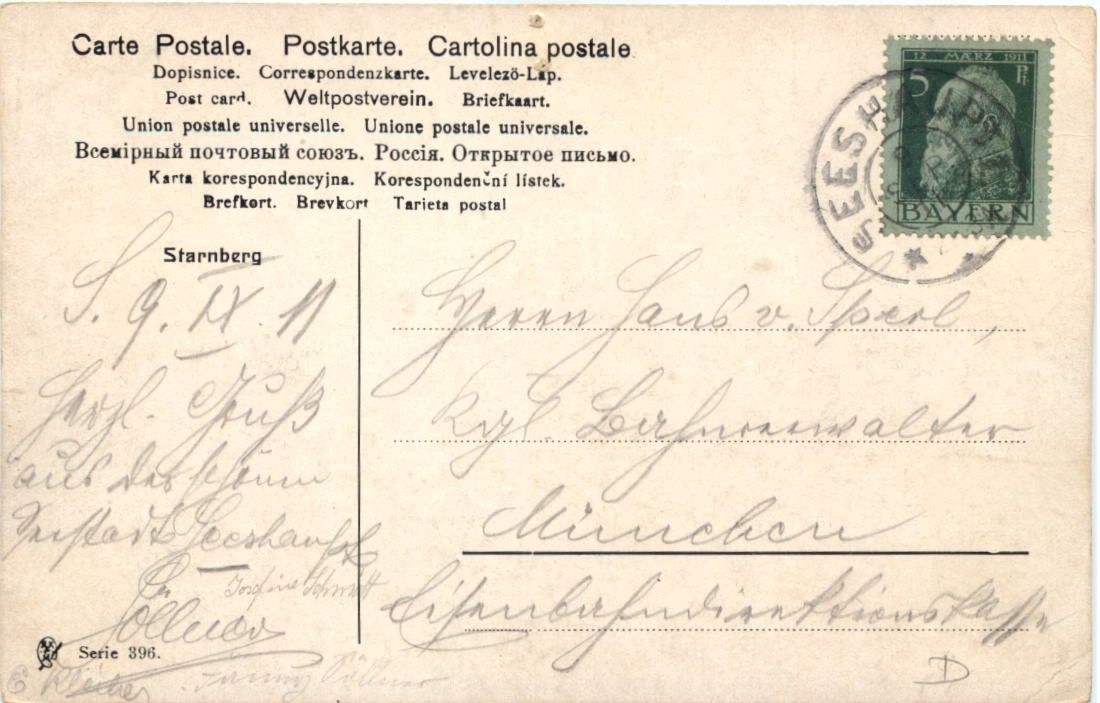 Carte Postale. Postkarte. Cartolina postale
Dopisnice. Correspondenzkarte. Levelező-Lap.
Post card. Weltpostverein. Briefkaart.
Union postale universelle. Unione postale universale.
Всемірный почтовый союзъ. Россія. Открытое письмо.
Karta korespondencyjna. Korespondenční lístek.
Brefkort. Brevkort Tarjeta postal
12 MÄRZ 1911
5 Pf
BAYERN
SEESHAUPT
Starnberg
S. 9. IX. 11
Herzl. Gruß
aus der schönen
Seestadt Seeshaupt
Josefine Schmitt
Söllner
Fanny Söllner
Serie 396.
Herrn Hans v. Sperl,
Kgl. Bahnverwalter
München
Eisenbahndirektionskasse
D